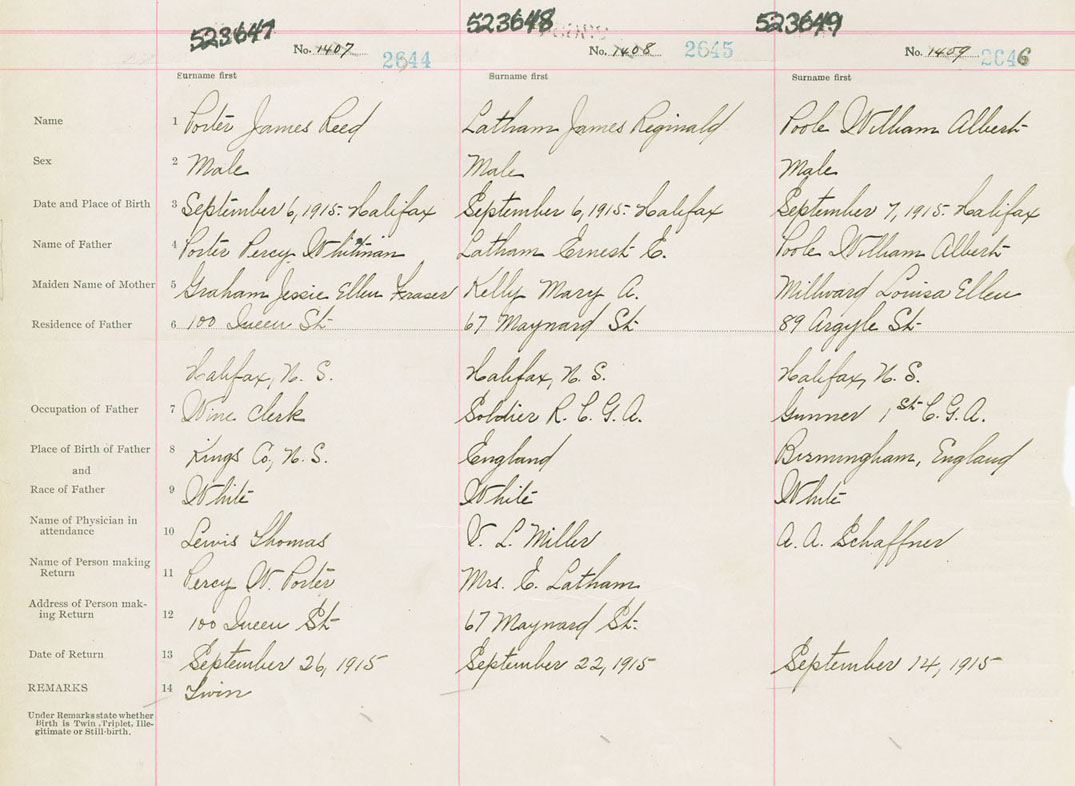 523647 523648 523649
No. 1407 2644 No. 1408 2645 No. 1409 2646
Surname first Surname first Surname first
Name 1 Porter James Reed Latham James Reginald Poole William Albert
Sex 2 Male Male Male
Date and Place of Birth 3 September 6, 1915. Halifax September 6, 1915. Halifax September 7, 1915. Halifax
Name of Father 4 Porter Percy Whitman Latham Ernest E. Poole William Albert
Maiden Name of Mother 5 Graham Jessie Ellen Fraser Kelly Mary A. Millward Louisa Ellen
Residence of Father 6 100 Queen St. 67 Maynard St. 89 Argyle St.
Halifax, N. S. Halifax, N. S. Halifax, N. S.
Occupation of Father 7 Wine Clerk Soldier R. C. G. A. Gunner 1st C. G. A.
Place of Birth of Father 8 Kings Co, N. S. England Birmingham, England
and
Race of Father 9 White White White
Name of Physician in
attendance 10 Lewis Thomas V. L. Miller A. A. Schaffner
Name of Person making
Return 11 Percy W. Porter Mrs. E. Latham
Address of Person mak-
ing Return 12 100 Queen St. 67 Maynard St.
Date of Return 13 September 26, 1915 September 22, 1915 September 14, 1915
REMARKS 14 Twin
Under Remarks state whether
Birth is Twin, Triplet, Ille-
gitimate or Still-birth.